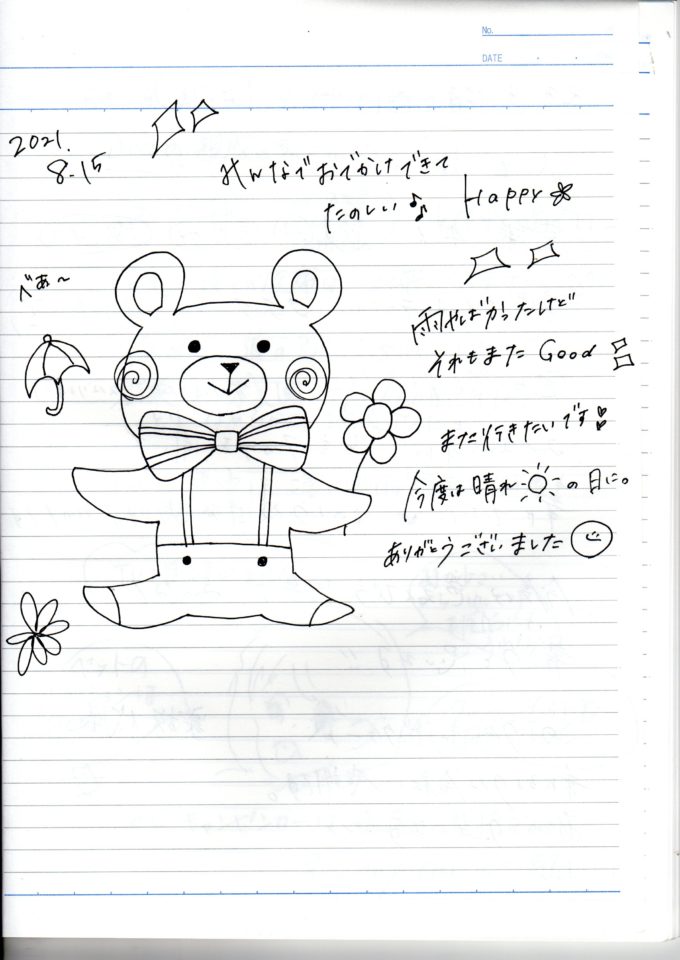 No.
DATE
2021.
8.15
みんなでおでかけできて
たのしい♪♫ Happy
べあ〜
雨やばかったけど
それもまた Good
また行きたいです
今度は晴れ の日に。
ありがとうございました